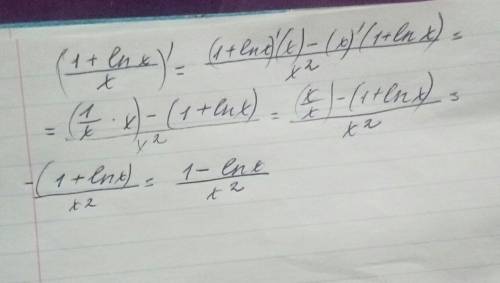 ((1 + ln x)/x)' = ((1+lnx)'(x) - (x)'(1+lnx))/x² =
= ((1/x · x) - (1+lnx))/x² = ((x/x) - (1+lnx))/x² =
-(1+lnx)/x² = (1-lnx)/x²